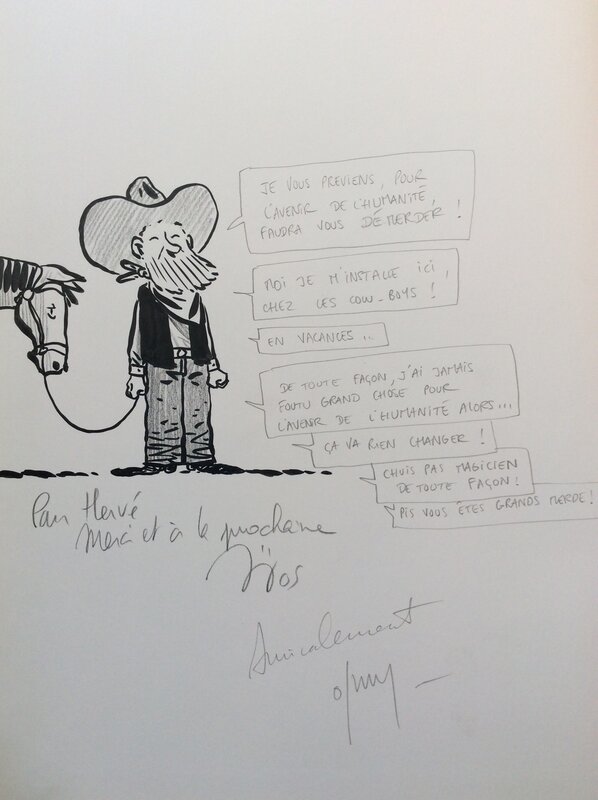 JE VOUS PREVIENS, POUR
L'AVENIR DE L'HUMANITÉ,
FAUDRA VOUS DÉMERDER !
MOI JE M'INSTALLE ICI,
CHEZ LES COW-BOYS !
EN VACANCES...
DE TOUTE FAÇON, J'AI JAMAIS
FOUTU GRAND CHOSE POUR
L'AVENIR DE L'HUMANITÉ ALORS...
ÇA VA RIEN CHANGER !
CHUIS PAS MAGICIEN
DE TOUTE FAÇON !
PIS VOUS ÊTES GRANDS MERDE !
Pour Hervé
Merci et à la prochaine
Amicalement